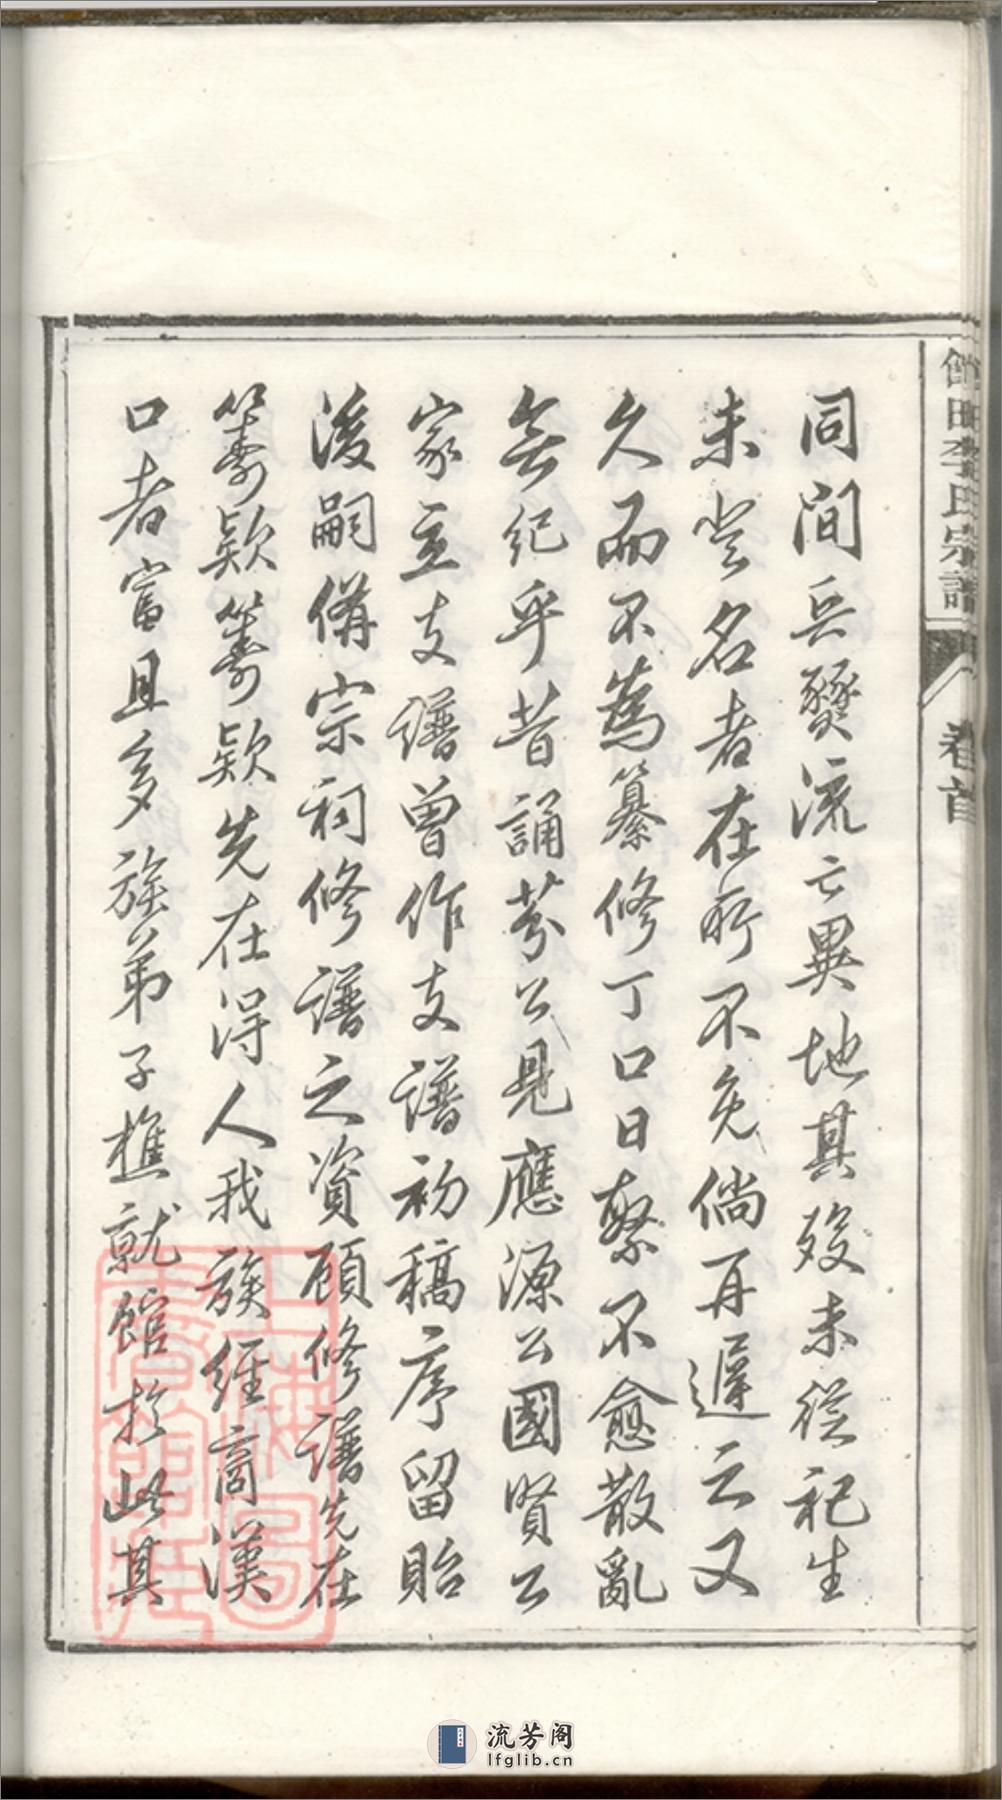 田李氏宗譜
卷首
同間兵燹流亡異地其歿未從祀生
未登名者在所不免倘再遲云又
久而不為纂修丁口日繁不愈散亂
無紀乎昔誦芬公見應源公國賢公
家立支譜曾作支譜初稿序留貽
後嗣備宗祠修譜之資顧修譜先在
籌欵籌欵先在得人我族經商漢
口者富且多族弟子樵就館於此其
流芳阁
lfglib.cn